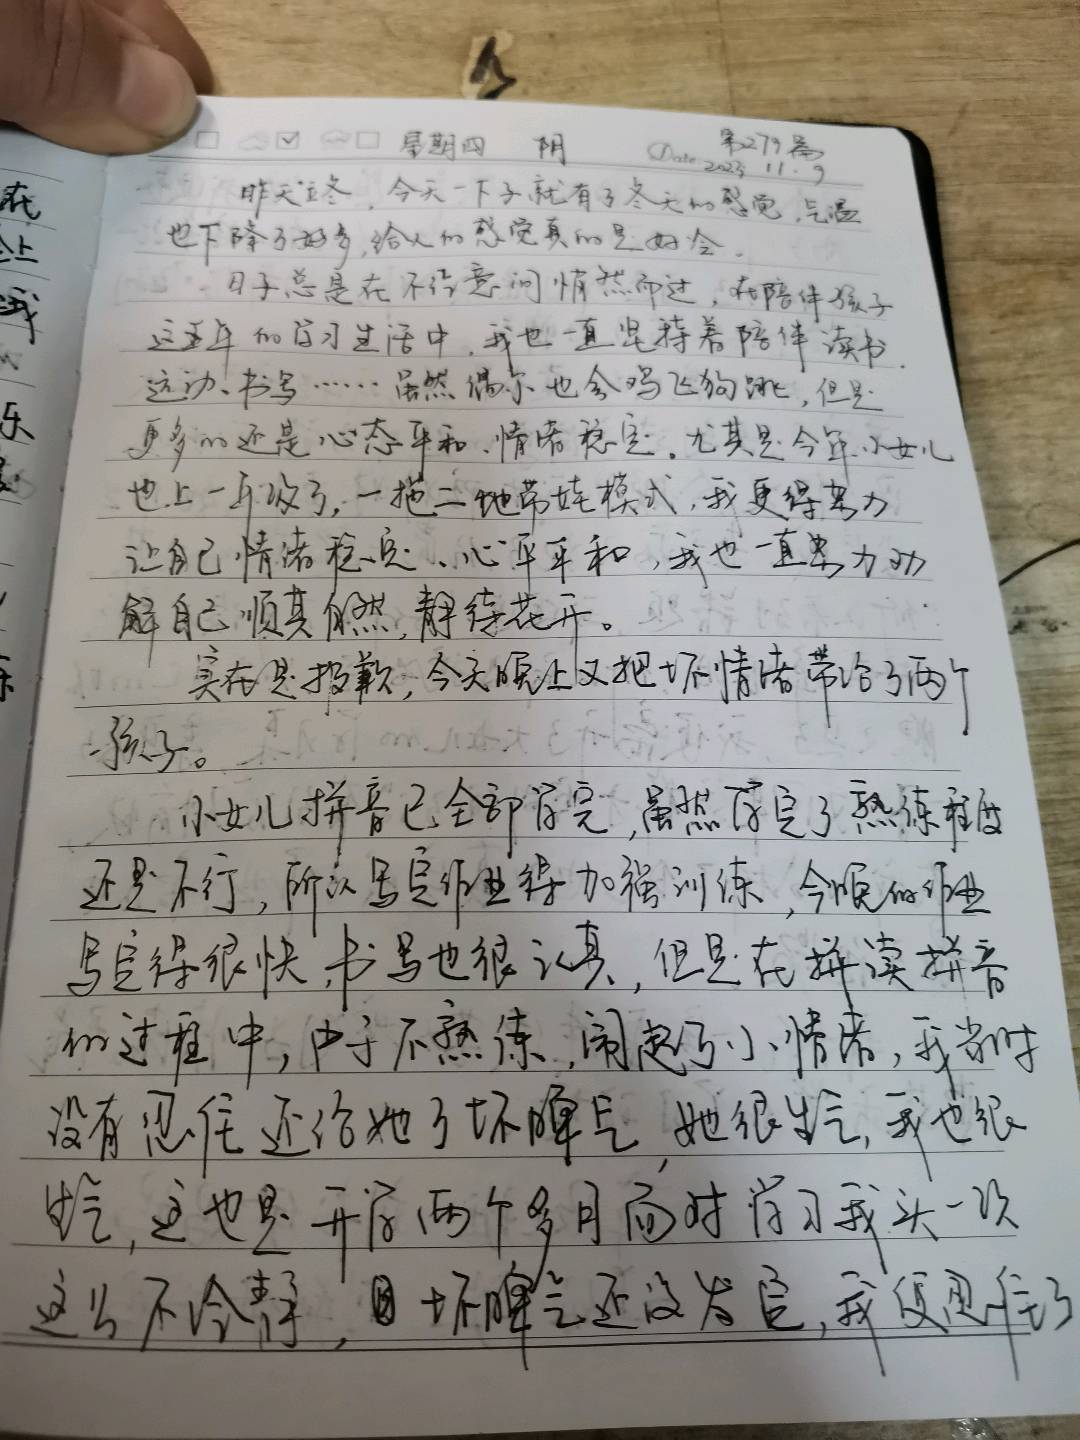 第279篇
星期四 阴 Date 2023 11.9
昨天立冬，今天一下子就有了冬天的感觉，气温
也下降了好多，给人的感觉真的是好冷．
日子总是在不经意间悄然而过，在陪伴孩子
这五年的学习生活中，我也一直坚持着陪伴读书．
运动、书写……虽然偶尔也会鸡飞狗跳，但是
更多的还是心态平和、情绪稳定。尤其是今年小女儿
也上一年级了，一拖二地带娃模式，我更得努力
让自己情绪稳定、心平平和，我也一直努力劝
解自己顺其自然，静待花开。
实在是抱歉，今天晚上又把坏情绪带给了两个
孩子。
小女儿拼音已全部学完，虽然学完了熟练程度
还是不行，所以写完作业得加强训练，今晚的作业
写完得很快，书写也很认真，但是在拼读拼音
的过程中，由于不熟练，闹起了小情绪，我当时
没有忍住还给她了坏脾气，她很生气，我也很
生气，这也是开学两个多月面对学习我头一次
这么不冷静，坏脾气还没发完，我便忍住了
在
上
我
乐